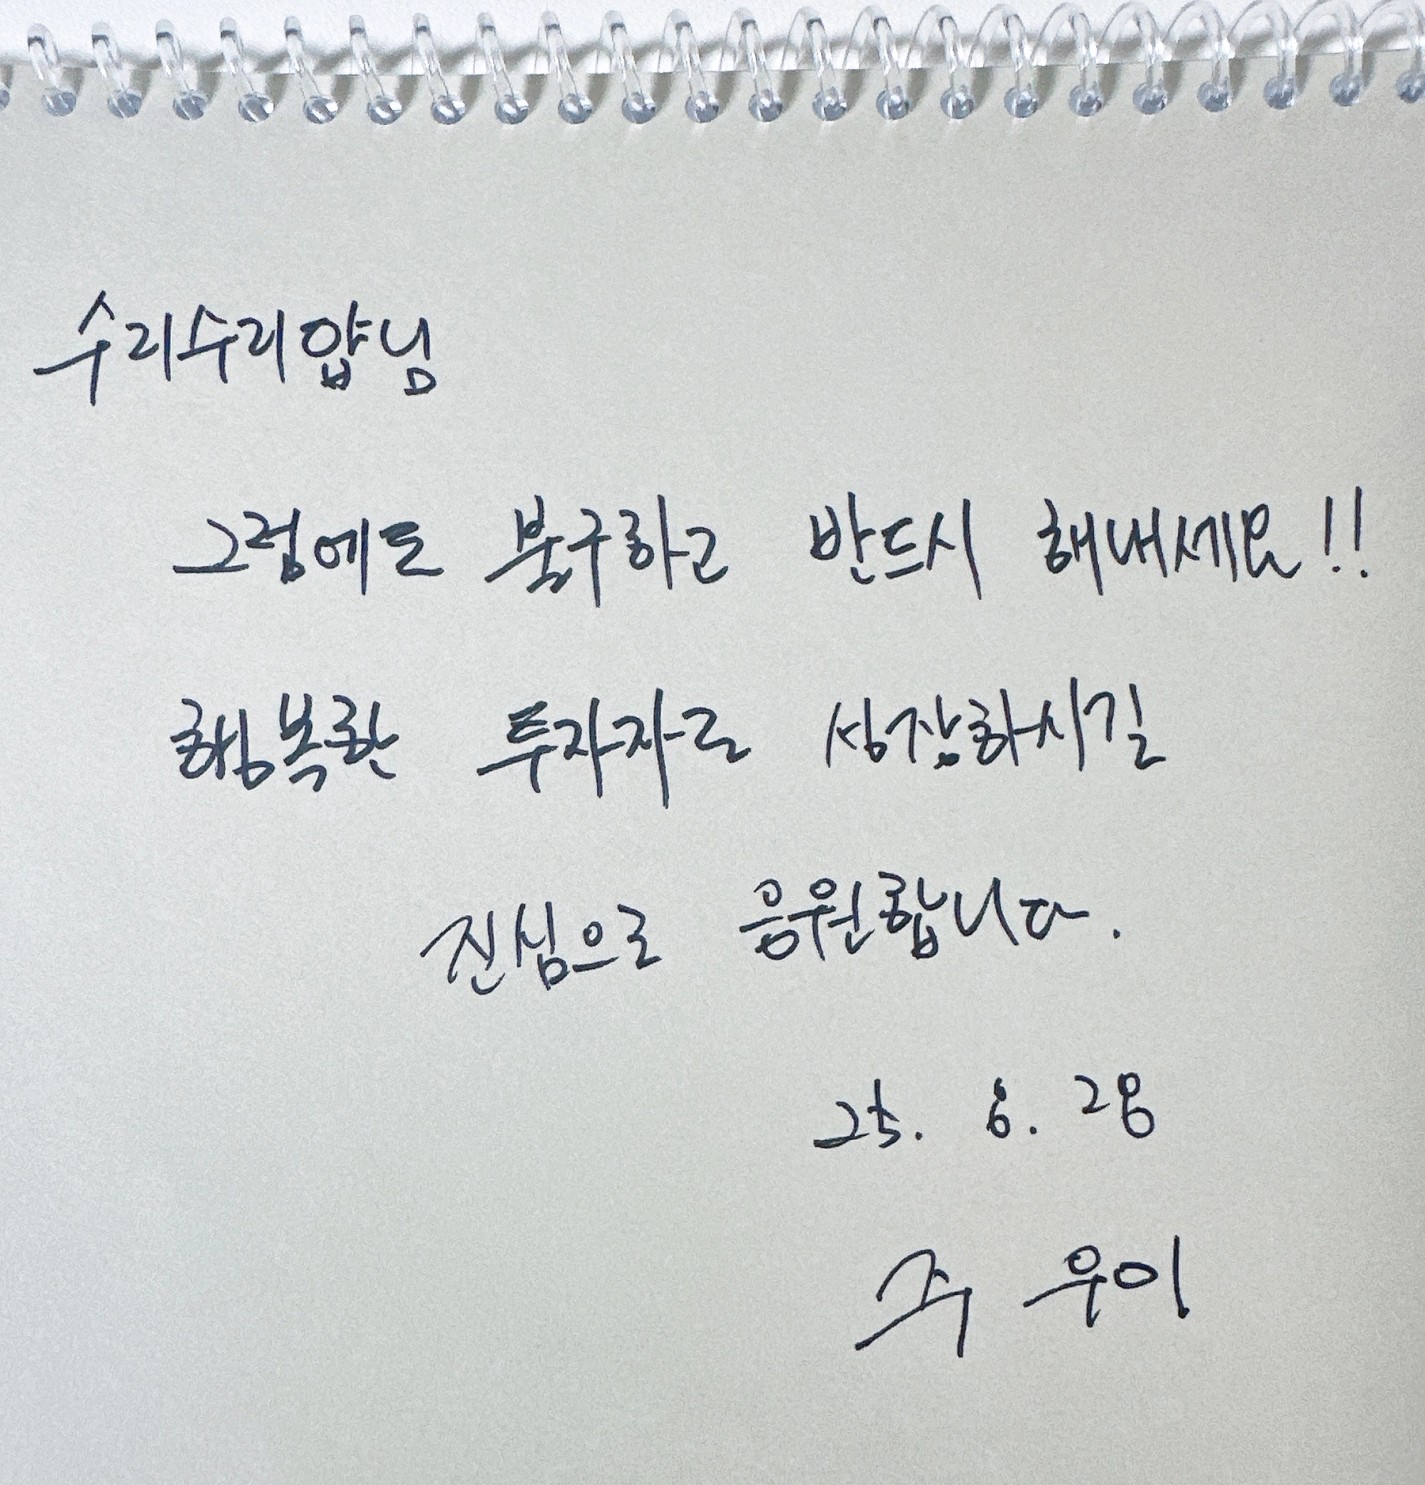 수리수리얍님
그럼에도 불구하고 반드시 해내세요!!
행복한 투자자로 성장하시길
진심으로 응원합니다.
25. 6. 28
주우이